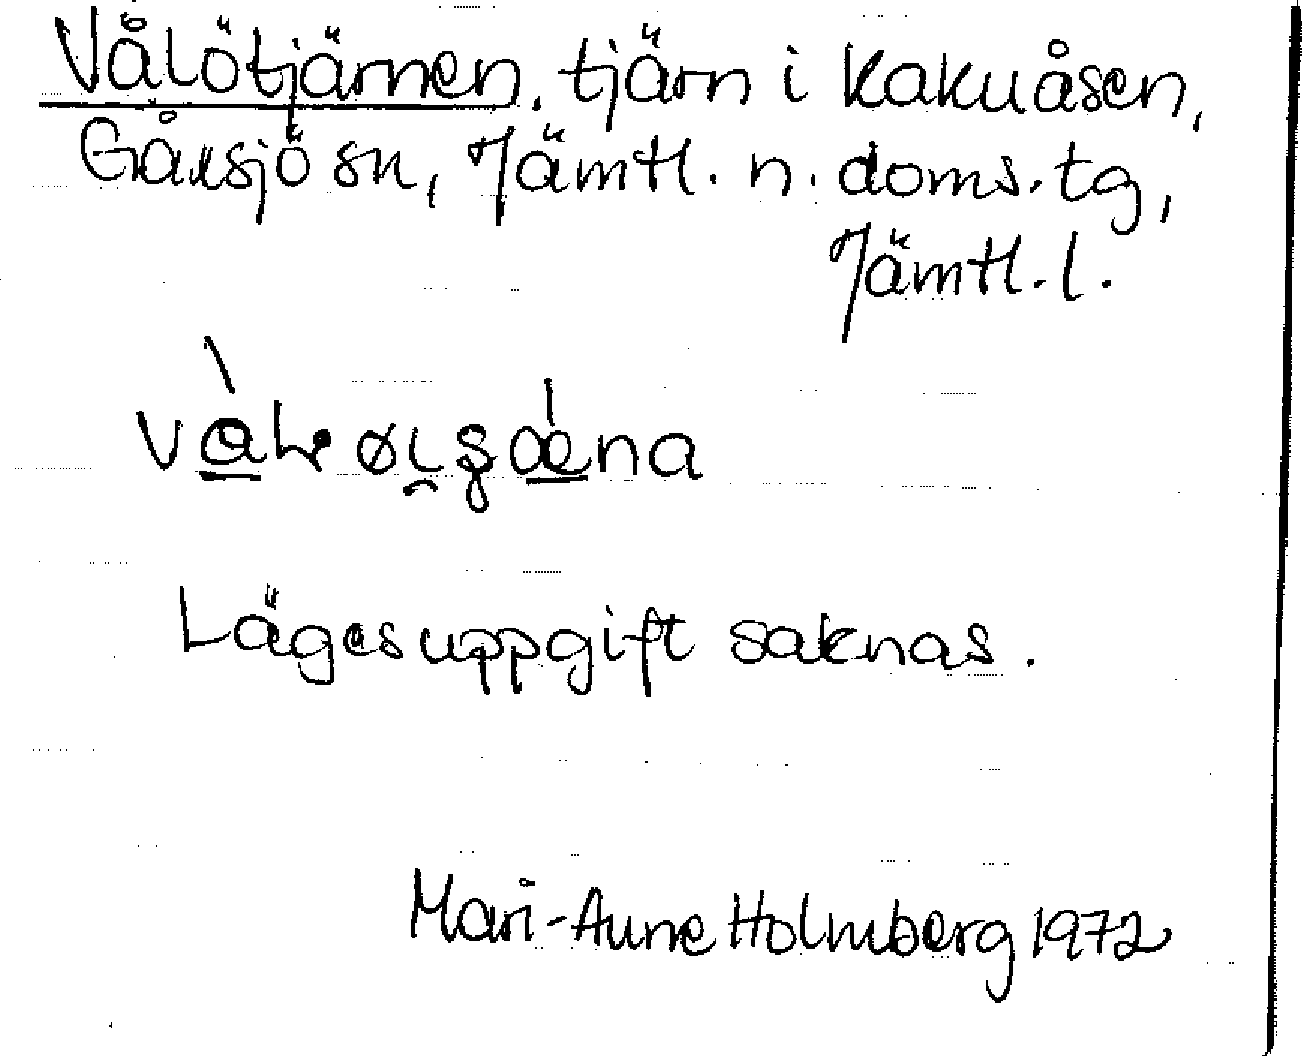 Vålötjärnen. tjärn i Kakuåsen,
Gåxsjö sn, Jämtl. n. doms. tg,
Jämtl. l.
Lägesuppgift saknas.
Mari-Anne Holmberg 1972